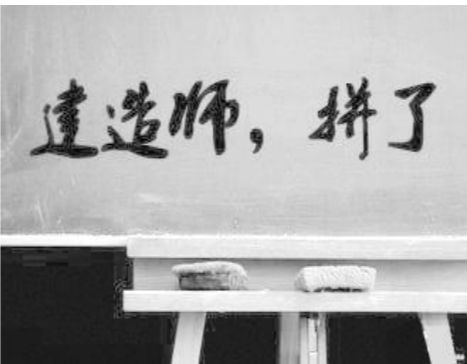 建造师，拼了